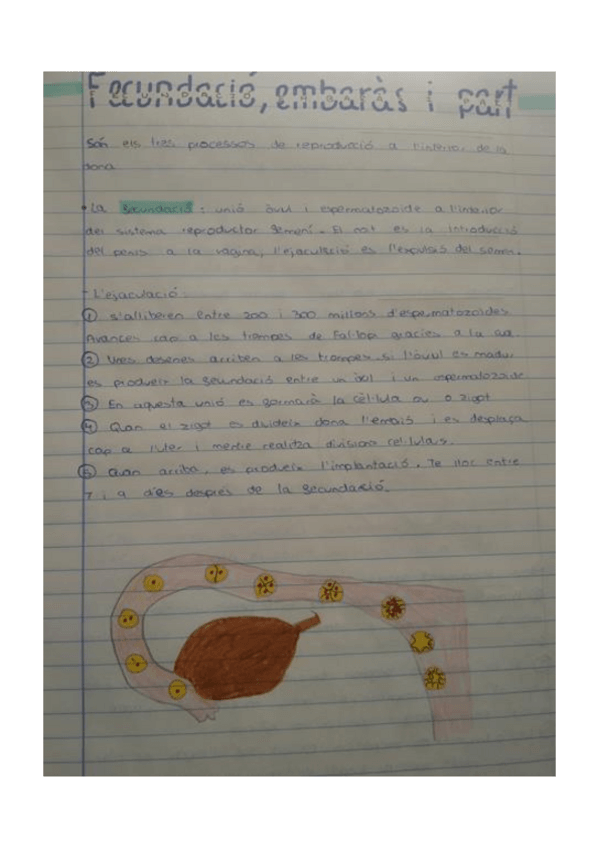 Fecundació, embaràs i part
Són els tres processos de reproducció a l'interior de la
dona
• La fecundació: unió òvul i espermatozoide a l'interior
del sistema reproductor femení. El coit es la introducció
del penis a la vagina, l'ejaculació es l'expulsió del semen.
- L'ejaculació:
① s'alliberen entre 200 i 300 millons d'espermatozoides
Avancen cap a les trompes de Fal·lop gràcies a la cua.
② Unes desenes arriben a les trompes, si l'òvul es madur
es produeix la fecundació entre un òvul i un espermatozoide
③ En aquesta unió es formarà la cèl·lula ou o zigot
④ Quan el zigot es divideix dona l'embrió i es desplaça
cap a l'úter i mentre realitza divisions cel·lulars.
⑤ Quan arriba, es produeix l'implantació. Te lloc entre
7 i 9 dies després de la fecundació.